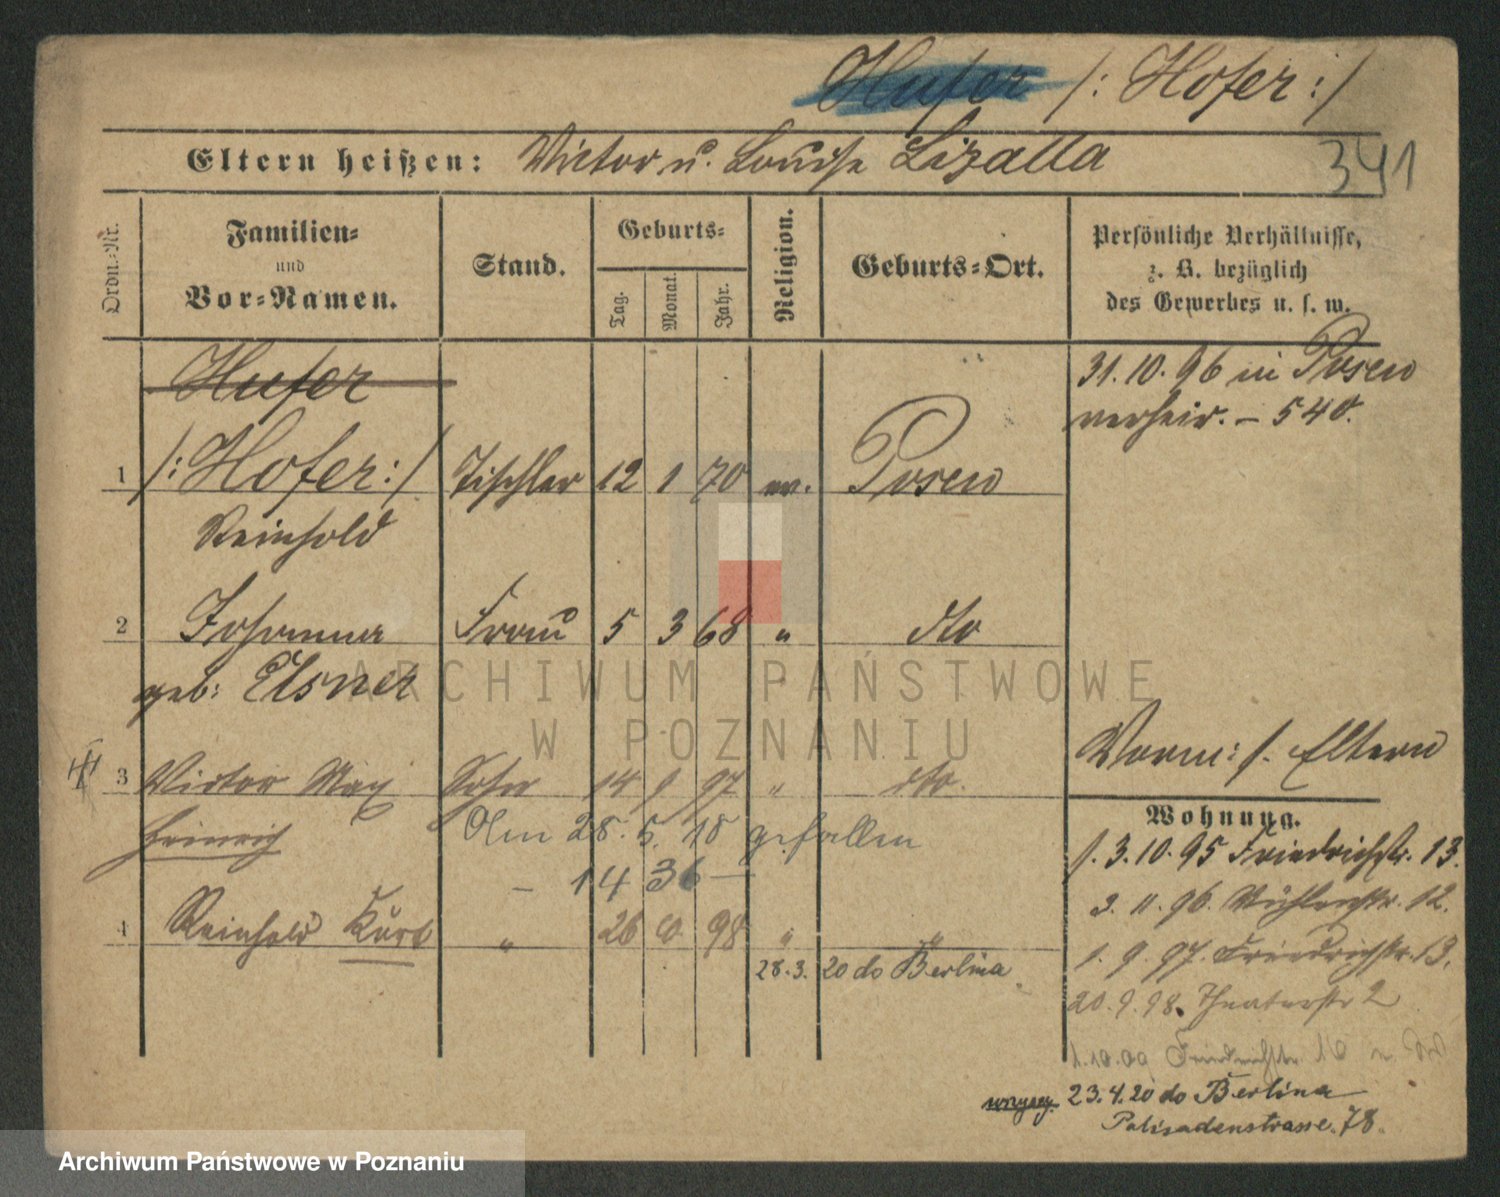 Hufer /: Hofer :/
Eltern heißen: Victor u. Louise Lizalla
341
Ordn.-Nr.
Familien-
und
Vor-Namen.
Stand.
Geburts-
Tag.
Monat.
Jahr.
Religion.
Geburts-Ort.
Persönliche Verhältnisse,
z. B. bezüglich
des Gewerbes u. s. w.
Hufer
31. 10. 96 in Posen
verheir. – 540.
1 /: Hofer :/ Tischler 12 1 70 ev. Posen
Reinhold
2 Johanna Frau 5 3 68 " dto
geb: Elsner
Vorm: s. Eltern
3 Victor Max Sohn 14 9 97 " dto.
Heinrich
Am 28. 5. 18 gefallen
– 14 36 –
4 Reinhold Kurt " 26 98 " "
28.3.20 do Berlina
Wohnung.
s. 3. 10. 95 Friedrichstr. 13.
3. 11. 96. Mühlenstr. 12.
1. 9. 97. Friedrichstr. 13.
20. 9. 98. Theaterstr 2
Friedrichstr.
23.4.20 do Berlina
Palisadenstrasse. 78.
ARCHIWUM PAŃSTWOWE
W POZNANIU
Archiwum Państwowe w Poznaniu